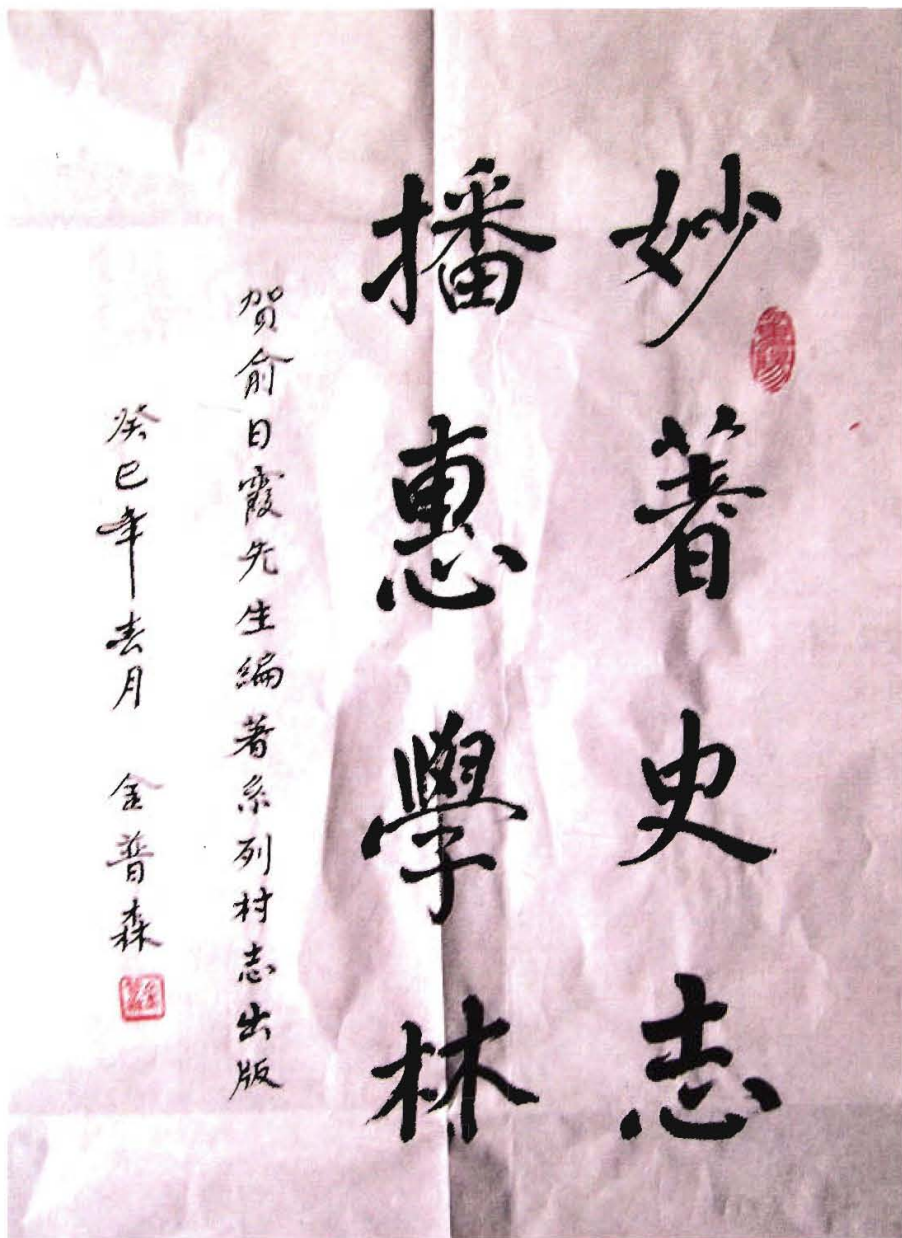 妙著史志
播惠學林
贺俞日霞先生编著系列村志出版
癸巳年春月 金普森